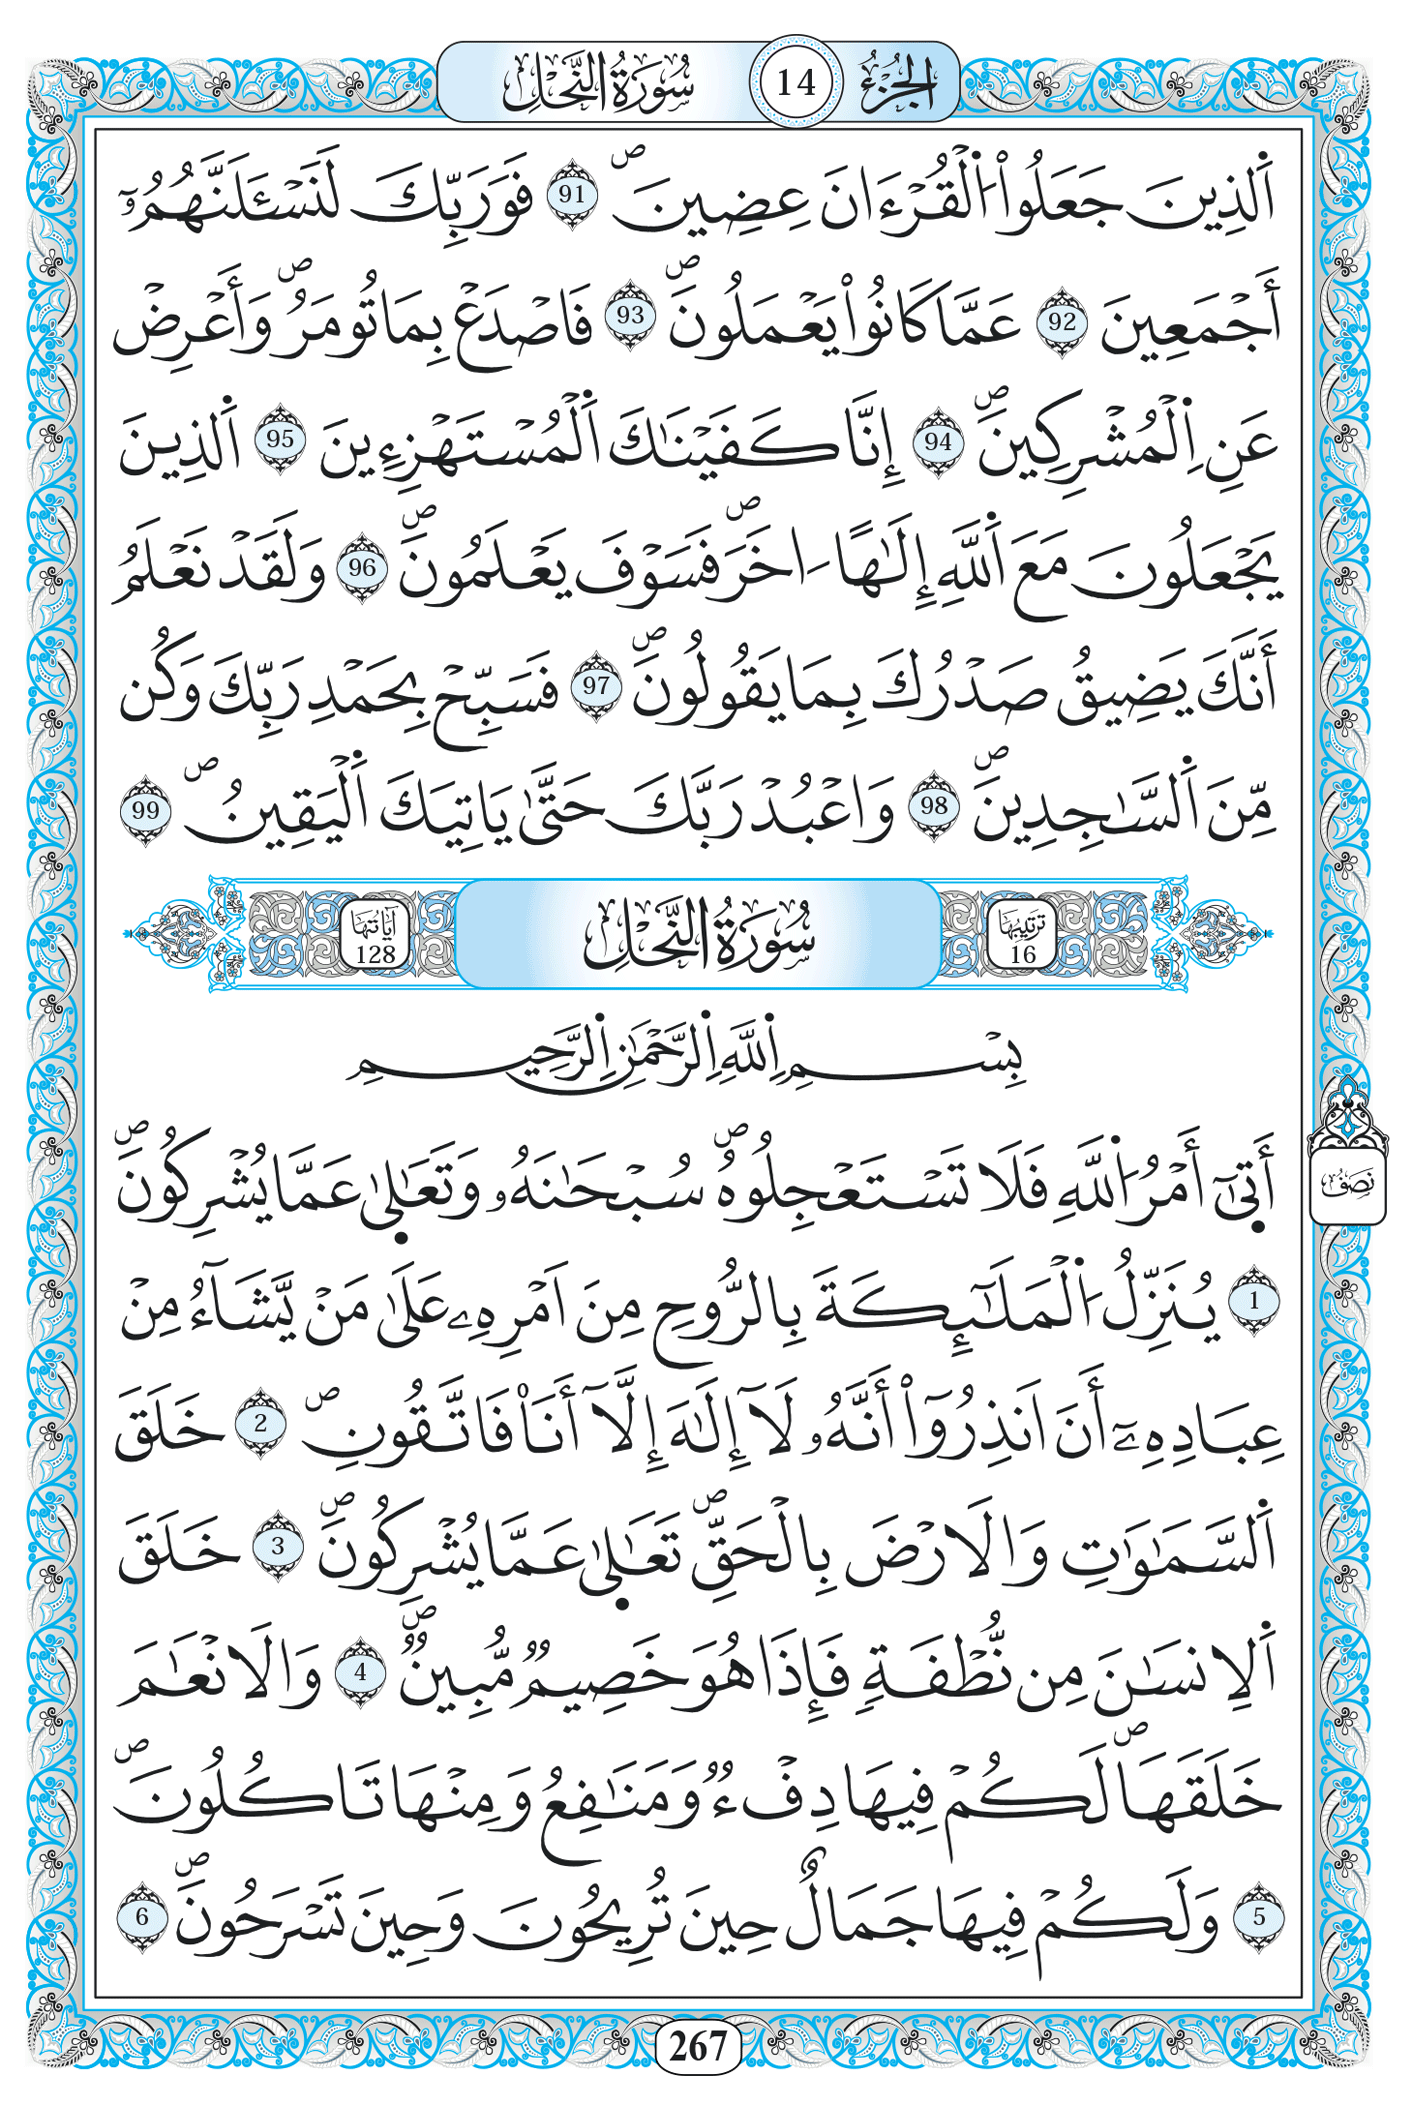 الجزء 14 سورة النحل
اَ۬لذِينَ جَعَلُواْ اُ۬لْقُرْءَانَ عِضِينَۖ 91 فَوَرَبِّكَ لَنَسْـَٔلَنَّهُمُۥٓ
أَجْمَعِينَ 92 عَمَّا كَانُواْ يَعْمَلُونَۖ 93 فَاصْدَعْ بِمَا تُومَرُۖ وَأَعْرِضْ
عَنِ اِ۬لْمُشْرِكِينَۖ 94 إِنَّا كَفَيْنَٰكَ اَ۬لْمُسْتَهْزِءِينَ 95 اَ۬لذِينَ
يَجْعَلُونَ مَعَ اَ۬للَّهِ إِلَٰهاً اٰخَرَۖ فَسَوْفَ يَعْلَمُونَۖ 96 وَلَقَدْ نَعْلَمُ
أَنَّكَ يَضِيقُ صَدْرُكَ بِمَا يَقُولُونَۖ 97 فَسَبِّحْ بِحَمْدِ رَبِّكَ وَكُن
مِّنَ اَ۬لسَّٰجِدِينَۖ 98 وَاعْبُدْ رَبَّكَ حَتَّىٰ يَاتِيَكَ اَ۬لْيَقِينُۖ 99
ترتيبها 16 سورة النحل آياتها 128
بِسْمِ اِ۬للَّهِ اِ۬لرَّحْمَٰنِ اِ۬لرَّحِيمِ
أَت۪ىٰٓ أَمْرُ اُ۬للَّهِ فَلَا تَسْتَعْجِلُوهُۖ سُبْحَٰنَهُۥ وَتَعَٰل۪ىٰ عَمَّا يُشْرِكُونَۖ
نصف
1 يُنَزِّلُ اُ۬لْمَلَٰٓئِكَةَ بِالرُّوحِ مِنَ اَمْرِهِۦ عَلَىٰ مَنْ يَّشَآءُ مِنْ
عِبَادِهِۦٓ أَنَ اَنذِرُوٓاْ أَنَّهُۥ لَآ إِلَٰهَ إِلَّآ أَنَا۠ فَاتَّقُونِۖ 2 خَلَقَ
اَ۬لسَّمَٰوَٰتِ وَالَارْضَ بِالْحَقِّۖ تَعَٰل۪ىٰ عَمَّا يُشْرِكُونَۖ 3 خَلَقَ
اَ۬لِانسَٰنَ مِن نُّطْفَةٍ فَإِذَا هُوَ خَصِيمٌ مُّبِينٌۖ 4 وَالَانْعَٰمَ
خَلَقَهَاۖ لَكُمْ فِيهَا دِفْءٌ وَمَنَٰفِعُ وَمِنْهَا تَاكُلُونَۖ
5 وَلَكُمْ فِيهَا جَمَالٌ حِينَ تُرِيحُونَ وَحِينَ تَسْرَحُونَۖ 6
267